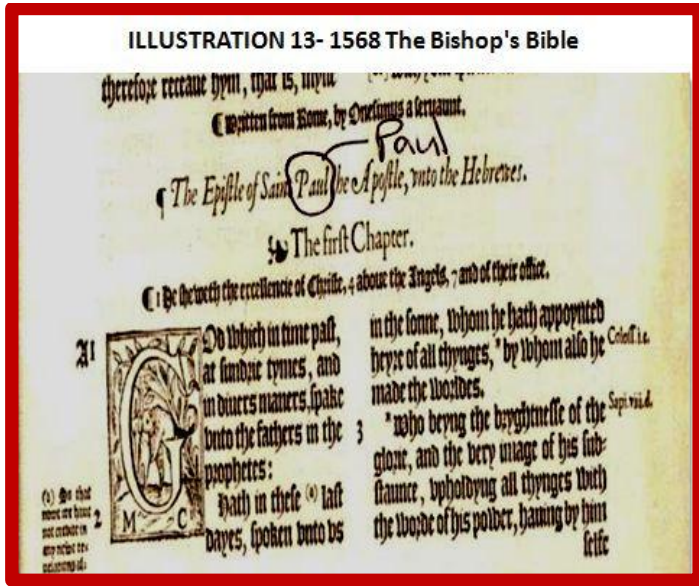 ILLUSTRATION 13- 1568 The Bishop's Bible
therefore receaue hym, that is, myne
¶ Written from Rome, by Onesimus a seruaunt.
Paul
¶ The Epistle of Saint Paul the Apostle, vnto the Hebrewes.
The first Chapter.
¶ 1 He sheweth the excellencie of Christe, 4 aboue the Angels, 7 and of their office.
A1
GOd which in time past,
at sundrie tymes, and
in diuers maners, spake
vnto the fathers in the
prophetes:
2 Hath in these (a) last
dayes, spoken vnto vs
M C
(a) So that
in the sonne, whom he hath appoynted
heyre of all thynges, * by whom also he
Coloss. i. c.
made the worldes.
3 * Who beyng the bryghtnesse of the
Sapi. vii. d.
glorie, and the very image of his sub-
staunce, vpholdyng all thynges with
the worde of his power, hauing by him
selfe